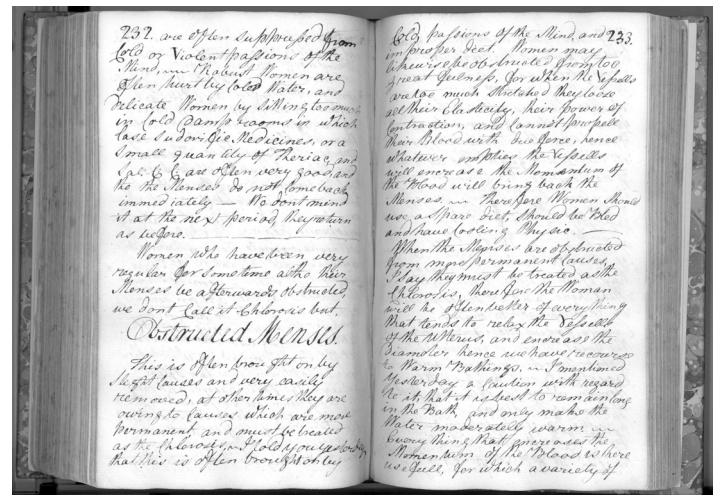 232. are often suppressed from
Cold or Violent passions of the
Mind, Robust Women are
often hurt by Cold Water, and
Delicate Women by sitting too much
in Cold Damp rooms in which
Case Sudorific Medicines, or a
Small quantity of Theriac and
Sal: C. C. are often very good, and
tho the Menses do not come back
immediately — We dont mind
it at the next period, they return
as before.
Women who have been very
regular for sometime altho their
Menses be afterwards obstructed,
we dont Call it Chlorosis but,
Obstructed Menses.
This is often brought on by
slight Causes and very easily
removed, at other times they are
owing to Causes which are more
permanent and must be treated
as the Chlorosis, I told you yesterday
that this is often brought on by
233.
Cold, passions of the Mind, and
improper diet. Women may
likewise be obstructed from too
great fulness, for when the Vessells
are too much Stretched they loose
all their Elasticity, their power of
Contraction, and Cannot propell
their Blood with due force, hence
whatever empties the Vessells
will encrease the Momentum of
the Blood will bring back the
Menses. therefore Women Should
use a Spare diet, Should be Bled
and have Cooling Physic. —
When the Menses are obstructed
from more permanent Causes,
I say they must be treated as the
Chlorosis, therefore the Woman
will be often better of everything
that tends to relax the Vessells
of the Uterus, and encrease the
Diameter hence we have recourse
to Warm Bathings, I mentioned
Yesterday a Caution with regard
to it, that it is best to remain long
in the Bath and only make the
Water moderately warm
Every thing that encreases the
Momentum of the Blood is there
usefull, for which a variety of